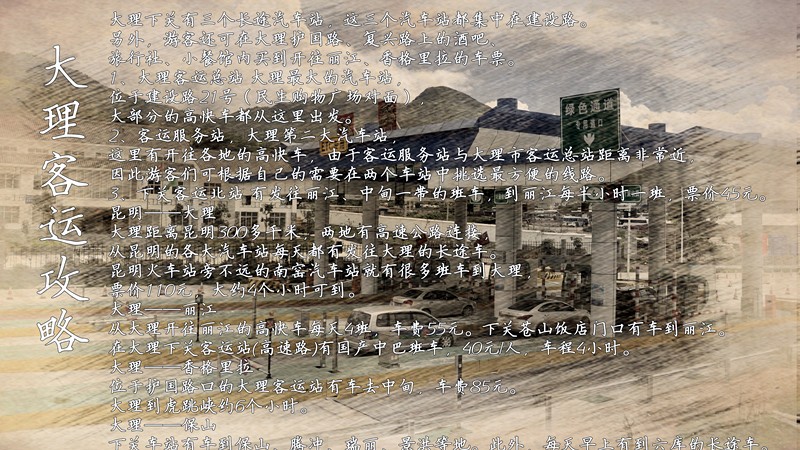 大理客运攻略
大理下关有三个长途汽车站，这三个汽车站都集中在建设路。
另外，游客还可在大理护国路、复兴路上的酒吧、
旅行社、小餐馆内买到开往丽江、香格里拉的车票。
1、大理客运总站 大理最大的汽车站，
位于建设路21号（民生购物广场对面），
大部分的高快车都从这里出发。
2、客运服务站，大理第二大汽车站，
这里有开往各地的高快车，由于客运服务站与大理市客运总站距离非常近，
因此游客们可根据自己的需要在两个车站中挑选最方便的线路。
3、下关客运北站 有发往丽江、中甸一带的班车，到丽江每半小时一班，票价45元。
昆明——大理
大理距离昆明300多千米，两地有高速公路连接，
从昆明的各大汽车站每天都有发往大理的长途车。
昆明火车站旁不远的南窑汽车站就有很多班车到大理，
票价110元，大约4个小时可到。
大理——丽江
从大理开往丽江的高快车每天4班，车费55元。下关苍山饭店门口有车到丽江。
在大理下关客运站(高速路)有国产中巴班车，40元/人，车程4小时。
大理——香格里拉
位于护国路口的大理客运站有车去中甸，车费85元。
大理到虎跳峡约6个小时。
大理——保山
下关车站有车到保山、腾冲、瑞丽、景洪等地。此外，每天早上有到六库的长途车。
绿色通道